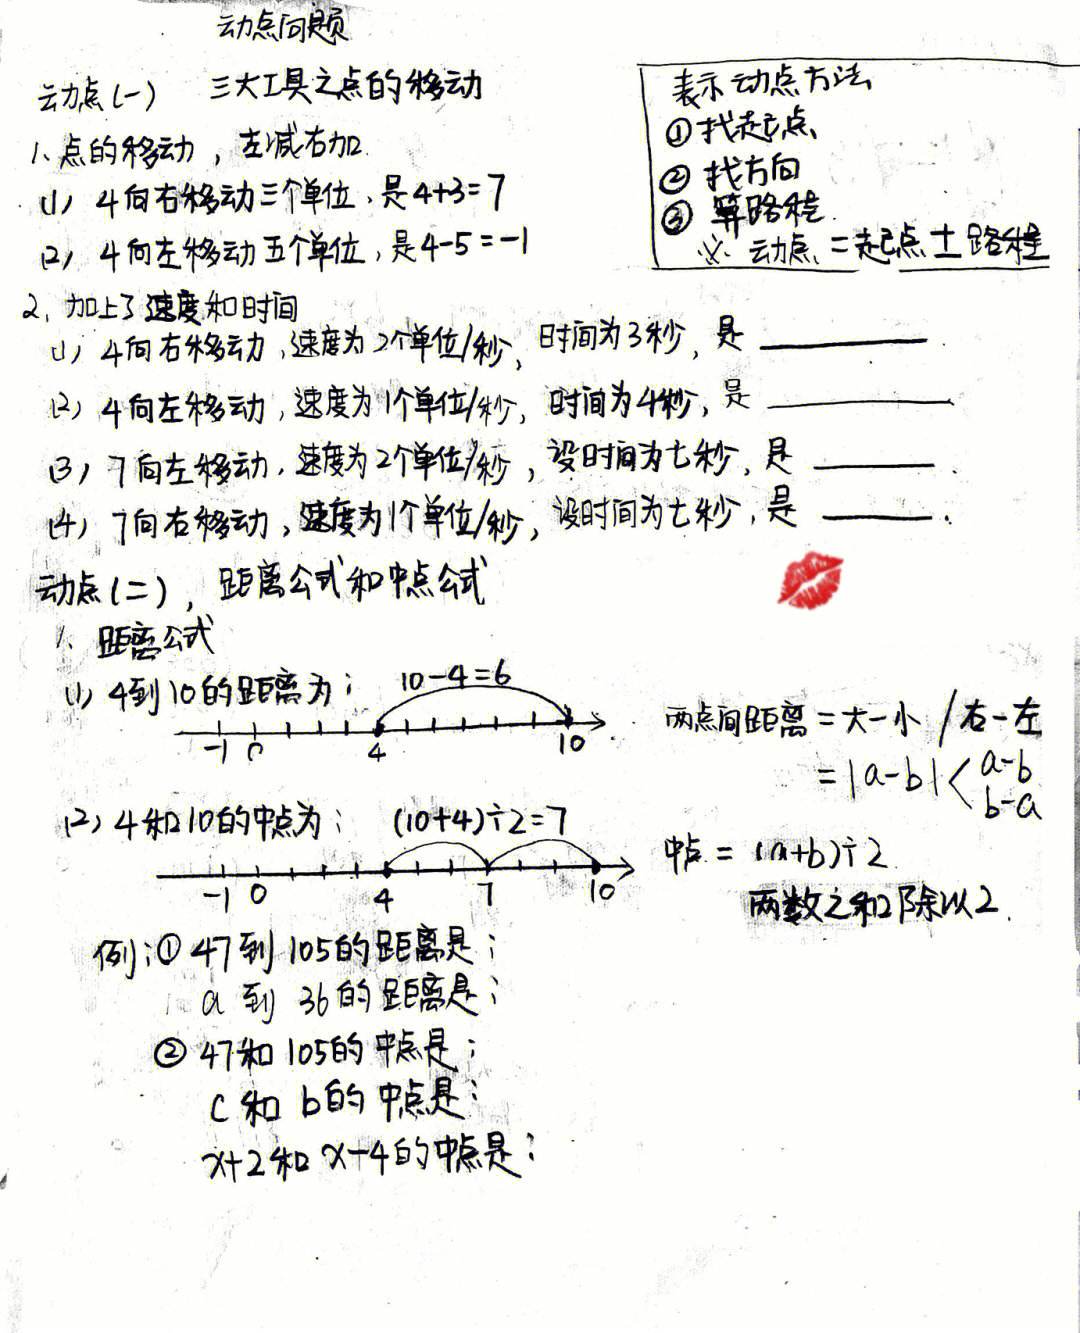 动点问题
动点(一) 三大工具之点的移动
1、点的移动，左减右加.
(1) 4向右移动三个单位，是4+3=7
(2) 4向左移动五个单位，是4-5=-1
表示动点方法
①找起点
②找方向
③算路程
※ 动点=起点±路程
2、加上了速度和时间
(1) 4向右移动,速度为2个单位/秒，时间为3秒，是
(2) 4向左移动,速度为1个单位/秒，时间为4秒，是
(3) 7向左移动,速度为2个单位/秒，设时间为t秒，是
(4) 7向右移动,速度为1个单位/秒，设时间为t秒，是
动点(二)，距离公式和中点公式
1、距离公式
(1) 4到10的距离为： 10-4=6
-1 0 4 10
两点间距离=大-小/右-左
=|a-b|< a-b
b-a
(2) 4和10的中点为： (10+4)÷2=7
-1 0 4 7 10
中点=(a+b)÷2
两数之和除以2.
例:①47到105的距离是：
a到36的距离是：
②47和105的中点是：
c和b的中点是：
x+2和x-4的中点是：